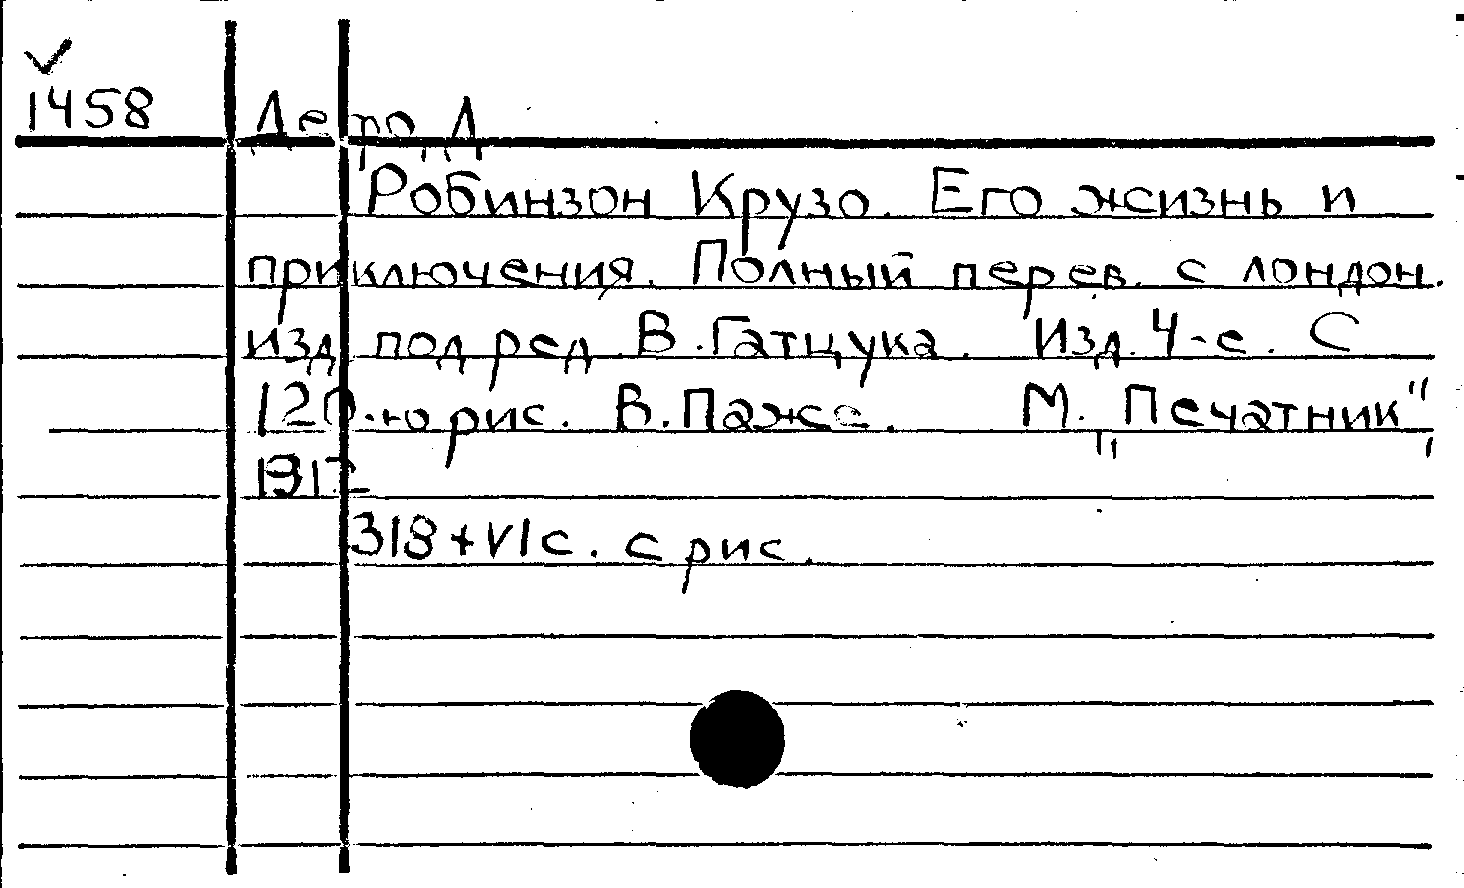 1458 Дефо, Д.
Робинзон Крузо. Его жизнь и
приключения. Полный перев. с лондон.
изд. под ред. В. Гатцука. Изд. 4-е. С
120-ю рис. В. Паже. М. "Печатник",
1912
318+VI с. с рис.